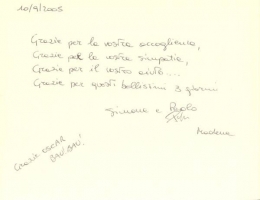 10/9/2005
Grazie per la vostra accoglienza,
Grazie per la vostra simpatia,
Grazie per il vostro aiuto....
Grazie per questi bellissimi 3 giorni
Simona e Paolo
Modena
Grazie OSCAR
BAU BAU!